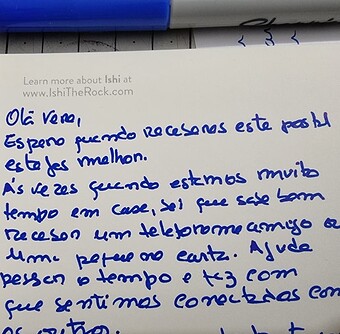 Learn more about Ishi at
www.IshiTheRock.com
Olá Vera,
Espero quando receberes este postal
estejas melhor.
Ás vezes quando estamos muito
tempo em casa, sei que sabe bem
receber um telefonema amigo ou
uma pequena carta. Ajuda
passar o tempo e faz com
que sentimos conectados com
os outros.